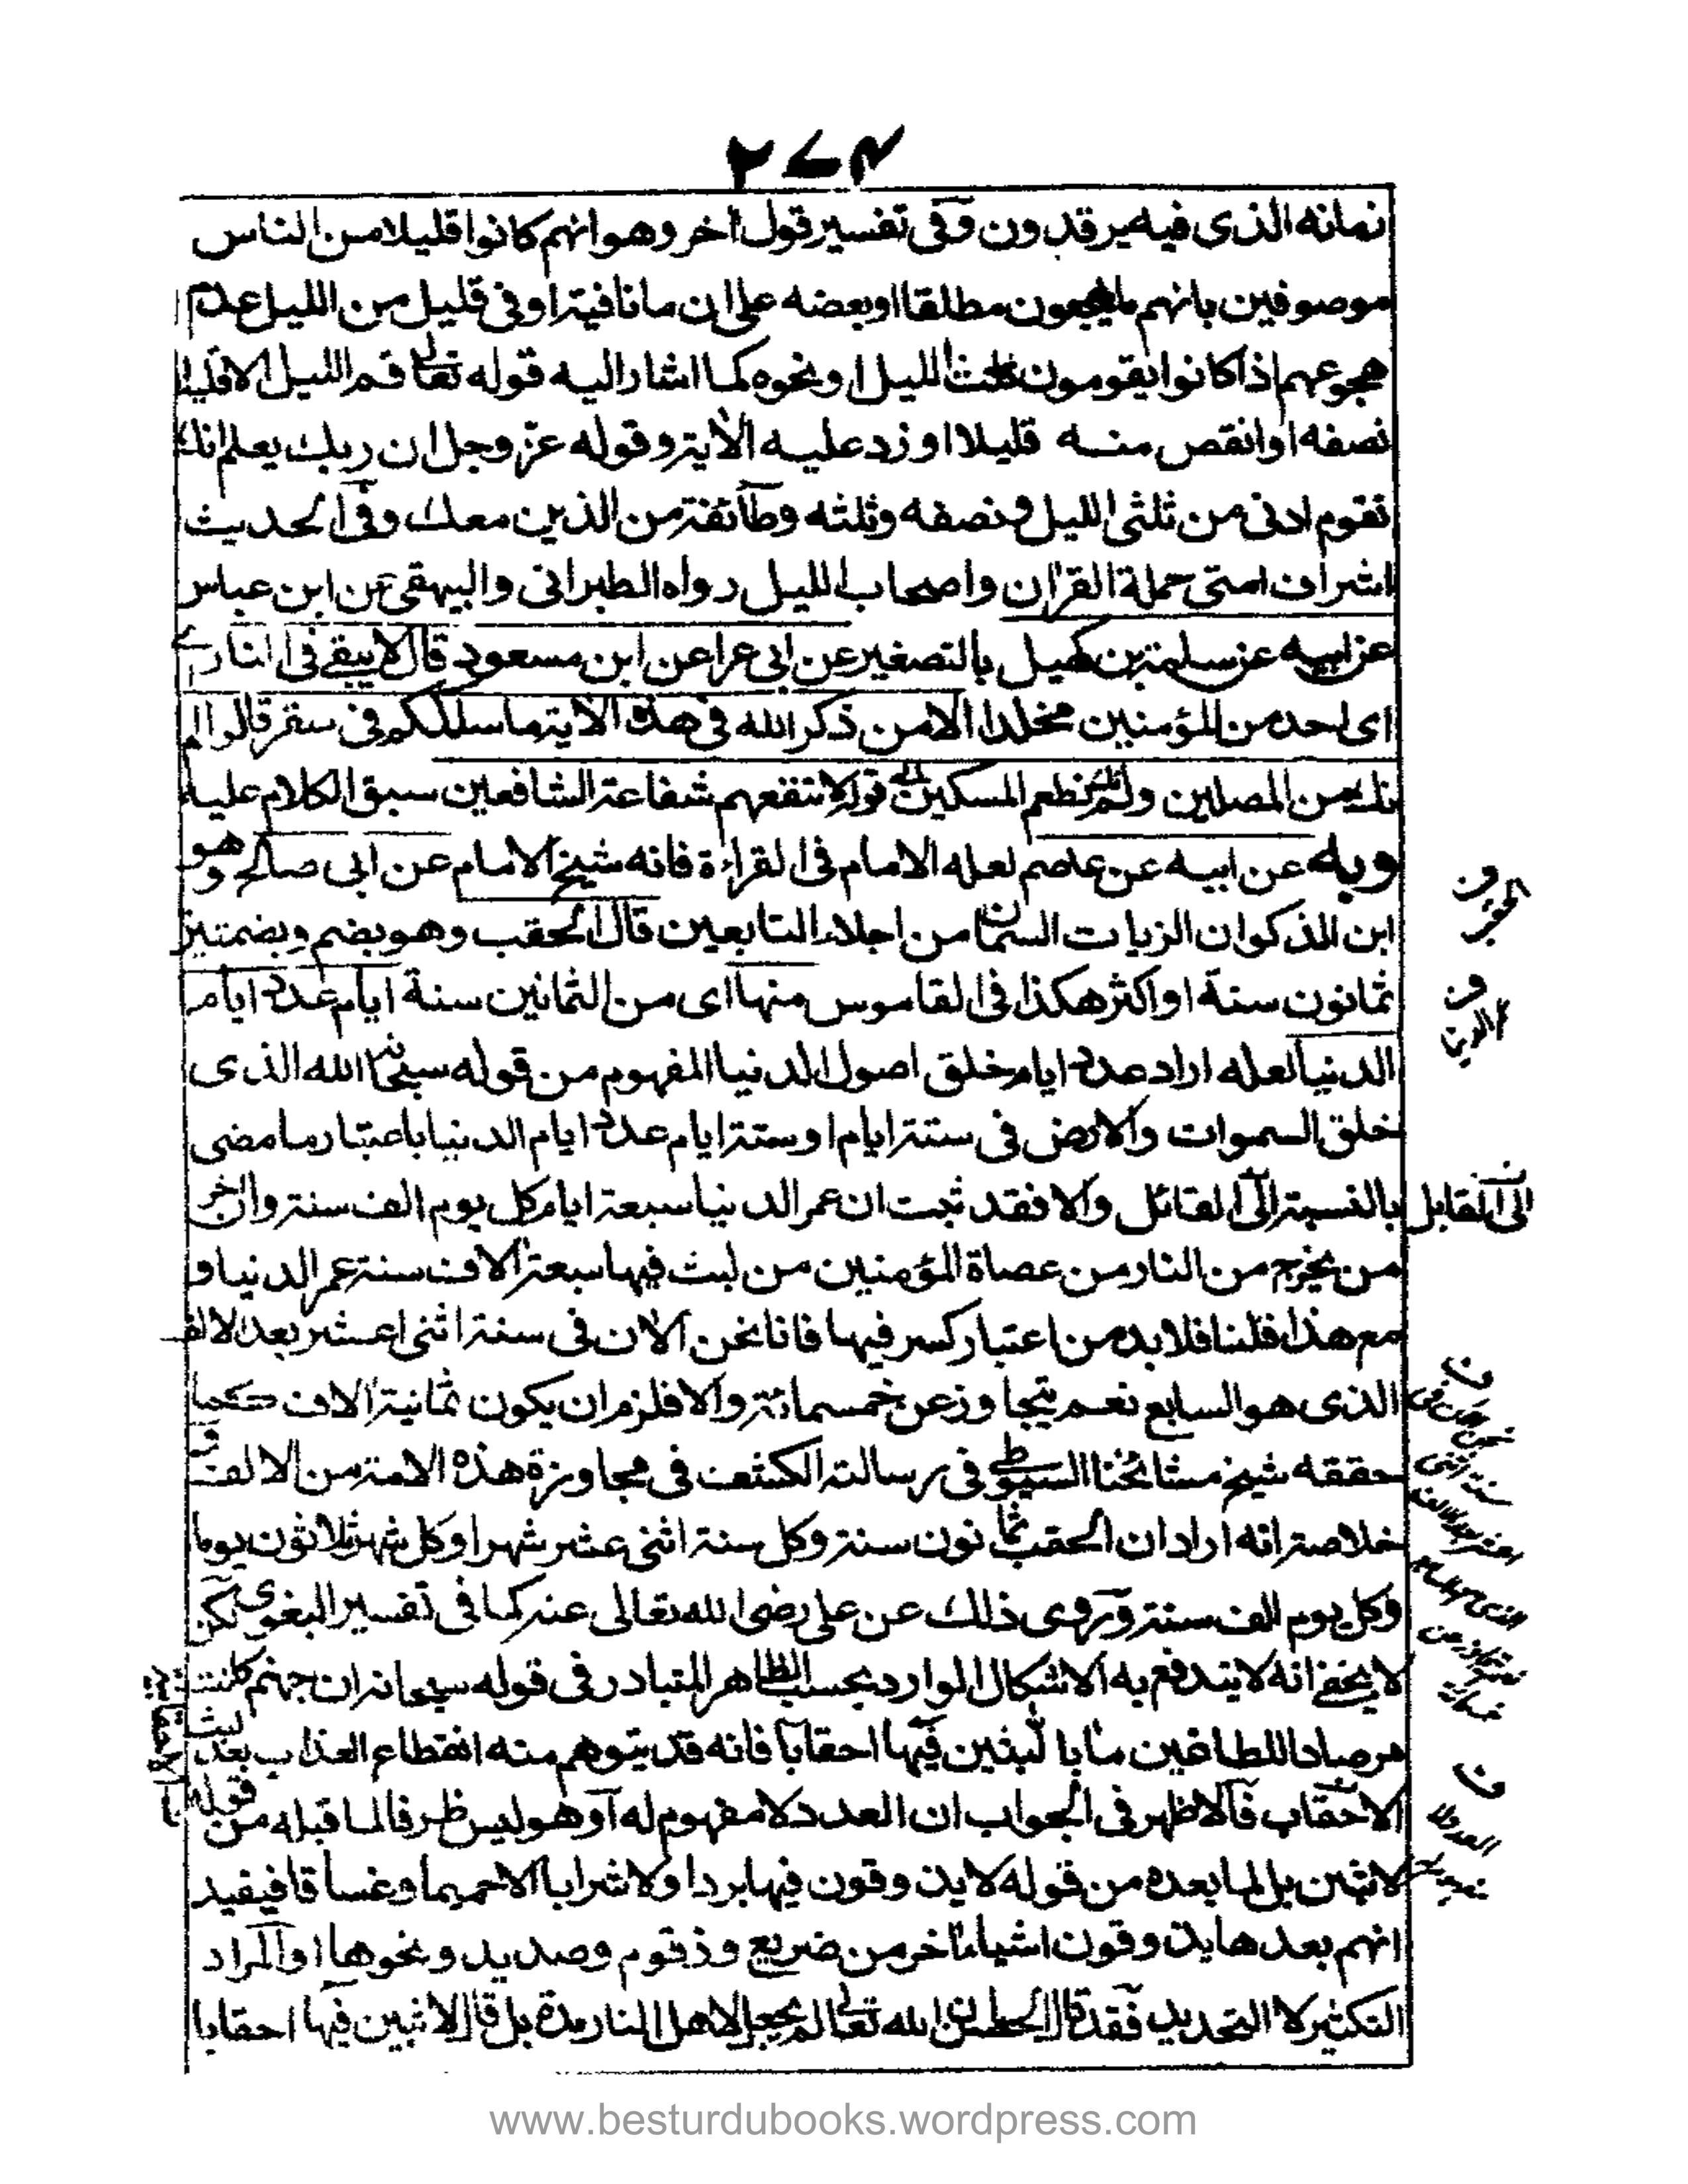 ۲۷۴
زمانه الذى فيه يرقدون وفى تفسير قول اخر وهو انهم كانوا قليلا من الناس
موصوفين بانهم ما يهجعون مطلقا او بعضه على ان ما نافية او فى قليل من الليل عدم
هجوعهم اذا كانوا يقومون ثلث الليل او نحوه كما اشار اليه قوله تعالى قم الليل الا قليلا
نصفه او انقص منه قليلا او زد عليه الأية وقوله عز وجل ان ربك يعلم انك
تقوم ادنى من ثلثى الليل ونصفه وثلثه وطآئفة من الذين معك وفى الحديث
اشراف امتى حملة القرأن واصحاب الليل رواه الطبرانى والبيهقى عن ابن عباس
عن ابيه عن سلمة بن كهيل بالتصغير عن ابى عرا عن ابن مسعود قال لا يبقے فى النار
اى احد من المؤمنين مخلدا الا من ذكر الله فى هذه الأية ما سلككم فى سقر قالوا لم
نك من المصلين ولم نك نطعم المسكين الى قوله لا تنفعهم شفاعة الشافعين سبق الكلام عليه
وبه عن ابيه عن عاصم لعله الامام فى القراءة فانه شيخ الامام عن ابى صالح وهو
ابن المذكوان الزيات السمان من اجلاء التابعين قال الحقب وهو بضم وبضمتين
ثمانون سنة او اكثر هكذا فى القاموس منها اى من الثمانين سنة ايام عدد ايام
الدنيا لعله اراد عدد ايام خلق اصول الدنيا المفهوم من قوله سبحانه الله الذى
خلق السموات والارض فى ستة ايام او ستة ايام عدد ايام الدنيا باعتبار ما مضى
بالنسبة الى القائل والا فقد ثبت ان عمر الدنيا سبعة ايام كل يوم الف سنة وان اخر
الى المقابل
من يخرج من النار من عصاة المؤمنين من لبث فيها سبعة ألاف سنة عمر الدنيا و
مع هذا قلنا فلا بد من اعتبار كسر فيها فانا نحن الان فى سنة اثنى اعشر بعد الالف
الذى هو السابع نعم يتجاوز عن خمسمائة والا فلزم ان يكون ثمانية ألاف كما
حققه شيخ مشائخنا السيوطى فى رسالته الكشف فى مجاوزة هذه الامة من الالف و
خلاصته انه اراد ان الحقب ثمانون سنة وكل سنة اثنى عشر شهرا وكل شهر ثلاثون يوما
وكل يوم الف سنة وروى ذلك عن على رضى الله تعالى عنه كما فى تفسير البغوى لكن
لا يخفے انه لا يندفع به الاشكال الوارد بحسب الظاهر المتبادر فى قوله سبحانه ان جهنم كانت
مرصادا للطاغين مأبا لبثين فيها احقابا فانه قد يتوهم منه انقطاع العذاب بعد لبث
الاحقاب فالاظهر فى الجواب ان العدد لا مفهوم له او هو ليس ظرفا لما قبله من قوله
لابثين بل لما بعده من قوله لا يذوقون فيها بردا ولا شرابا الا حميما وغساقا فيفيد
انهم بعدها يذوقون اشياء اخر من ضريع وزقوم وصديد ونحوها او المراد
التكثير لا التحديد فقد قال الحسن ان الله تعالى لم يجعل لاهل النار مدة بل قال لابثين فيها احقابا
www.besturdubooks.wordpress.com